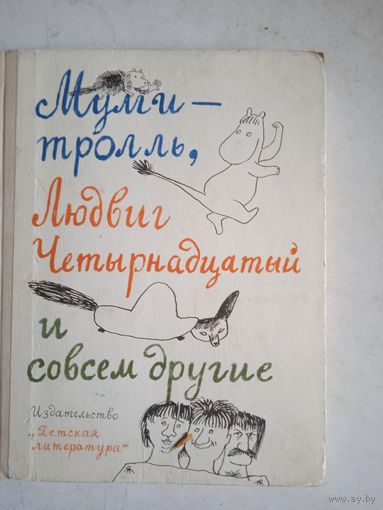 Муми-
тролль,
Людвиг
Четырнадцатый
и
совсем другие
Издательство
„Детская
литература“
www.ay.by